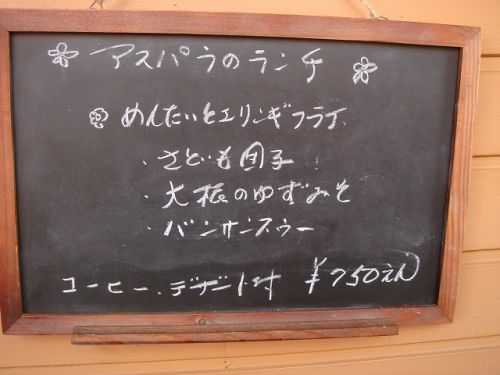 アスパラのランチ
めんたいとエリンギフライ
・さといも団子
・大根のゆずみそ
・バンサンスウー
コーヒー、デザート付 ¥750えん